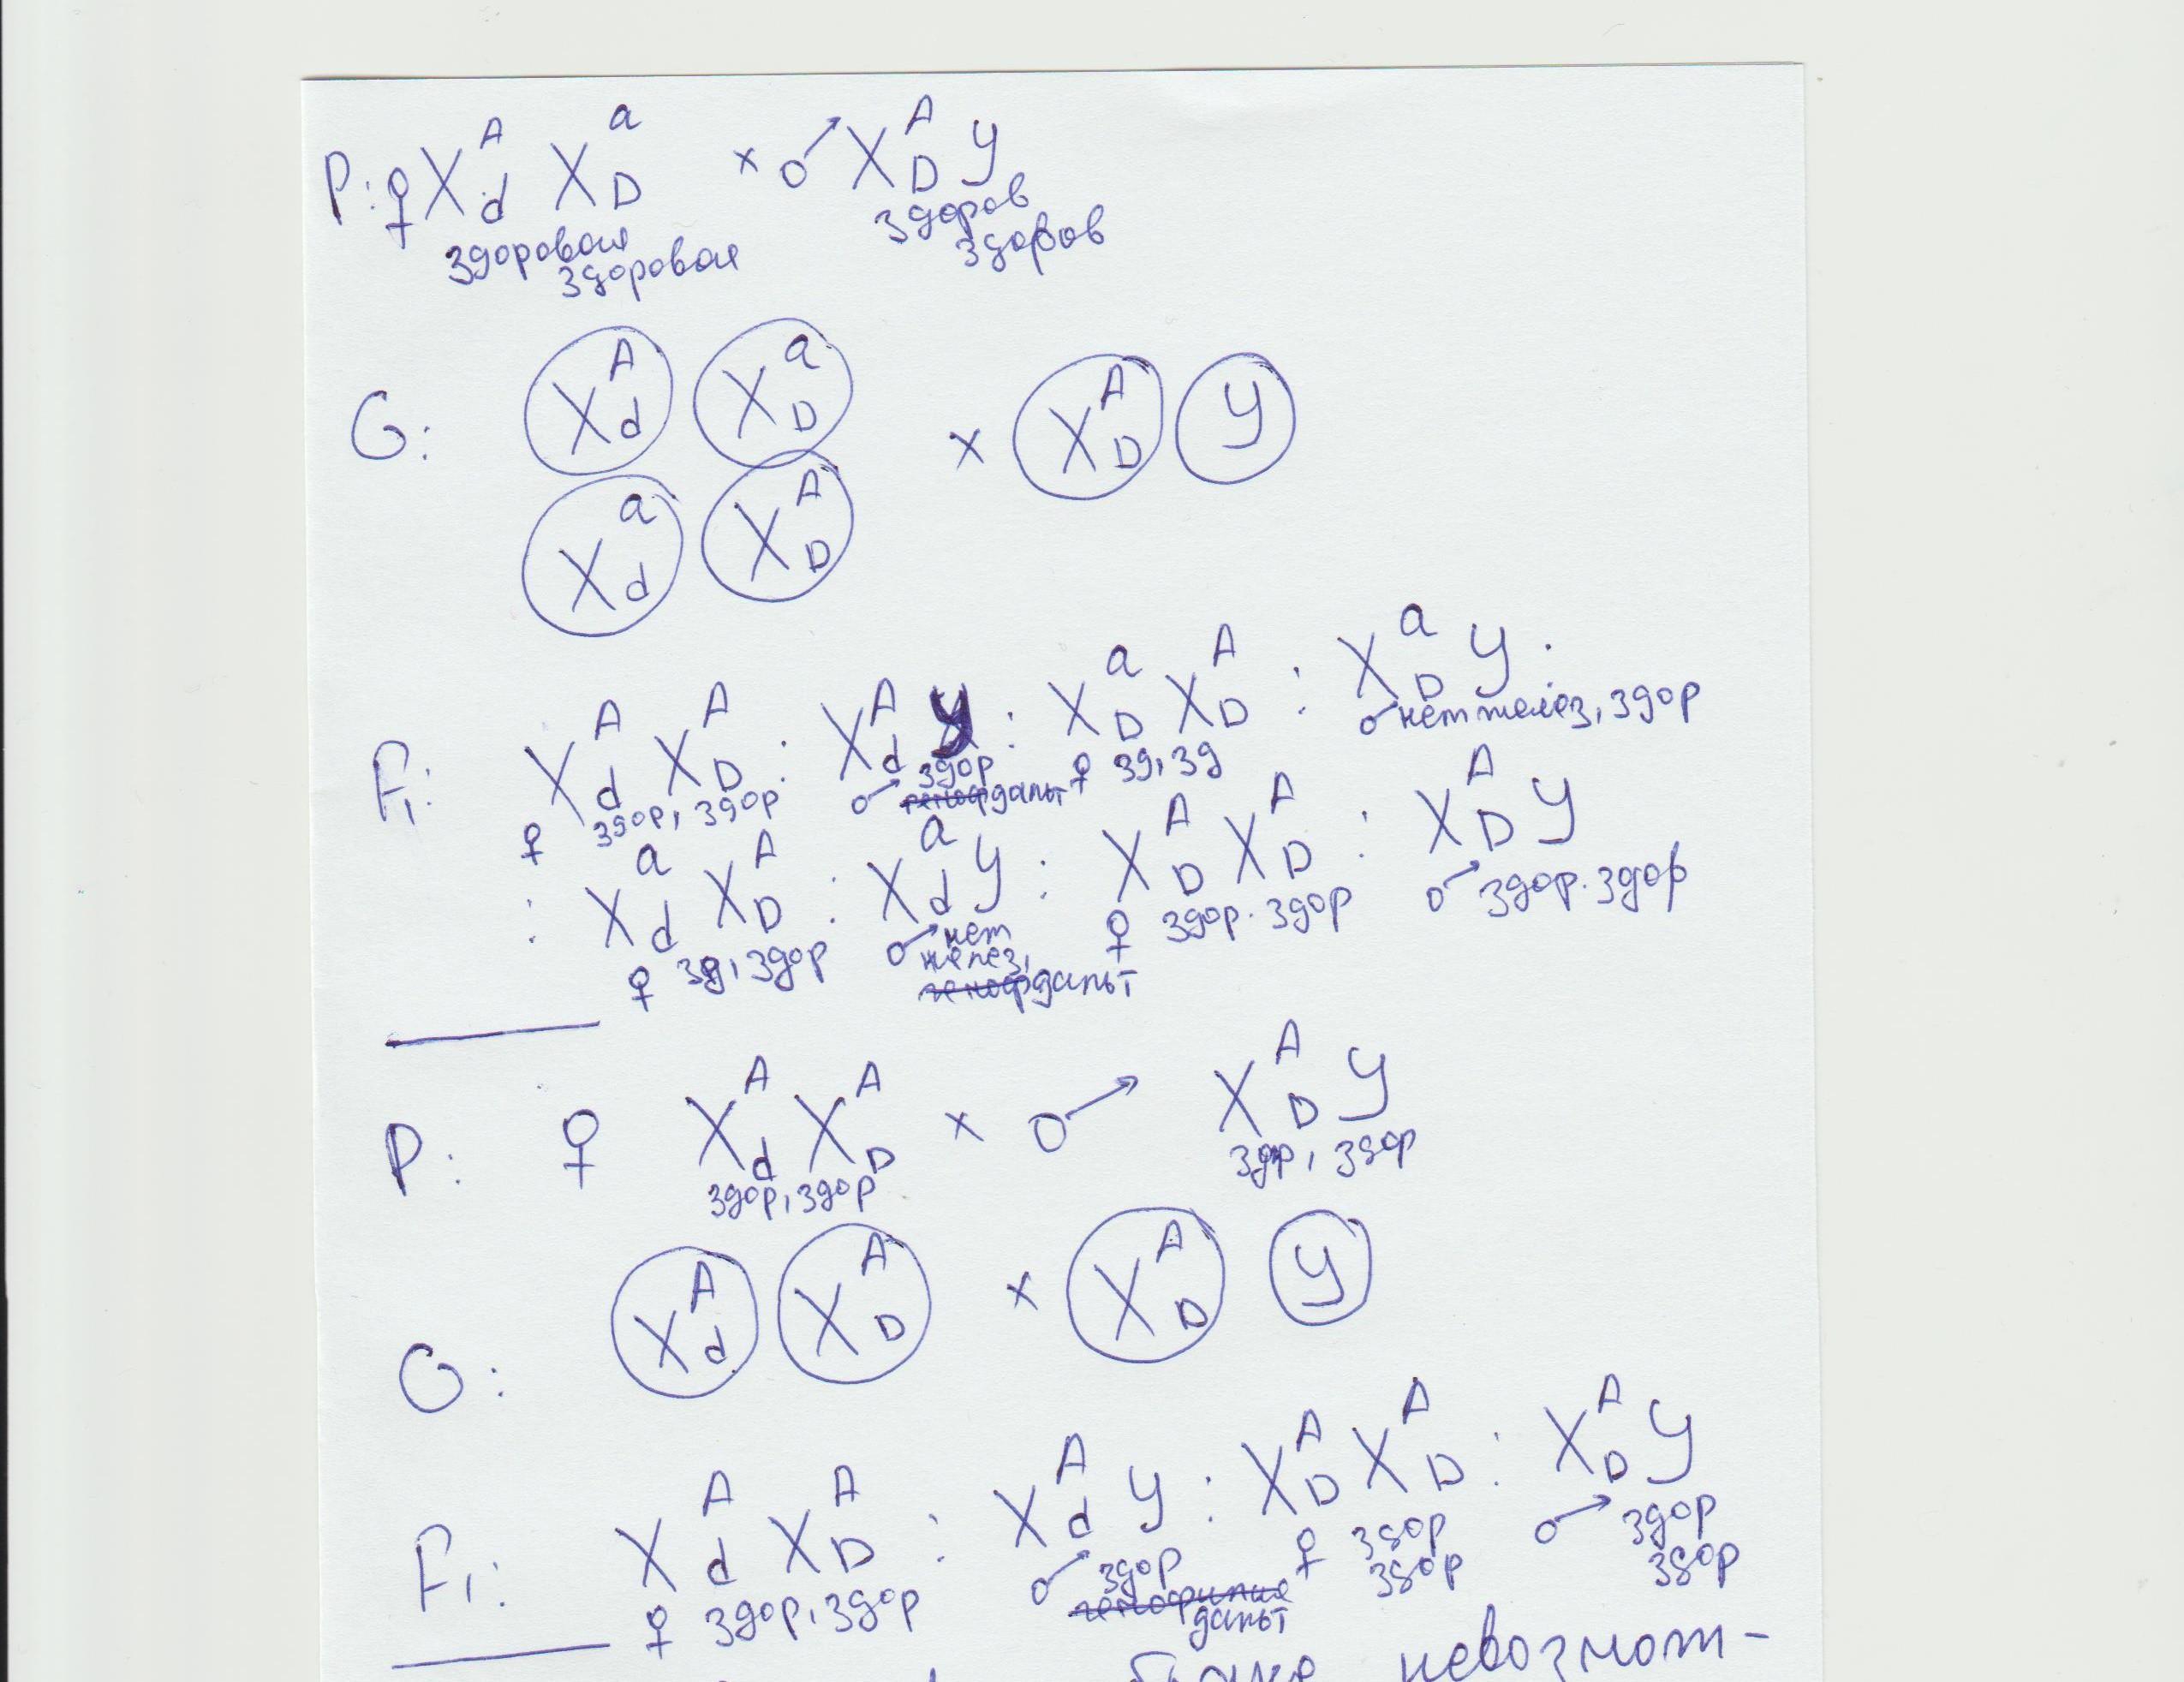 P: ♀ X^A_d X^a_D × ♂ X^A_D У
здоровая здоров
здоровая здоров
G: X^A_d X^a_D × X^A_D У
X^a_d X^A_D
F₁: X^A_d X^A_D : X^A_d У : X^a_D X^A_D : X^a_D У :
♀ здор, здор ♂ здор дальт ♀ зд, зд ♂ нет желез, здор
: X^a_d X^A_D : X^a_d У : X^A_D X^A_D : X^A_D У
♀ зд, здор ♂ нет желез, дальт ♀ здор. здор ♂ здор. здор
P: ♀ X^A_d X^A_D × ♂ X^A_D У
здор, здор здор, здор
G: X^A_d X^A_D × X^A_D У
F₁: X^A_d X^A_D : X^A_d У : X^A_D X^A_D : X^A_D У
♀ здор, здор ♂ здор ♀ здор ♂ здор
гемофилия дальт здор здор
браке невозмож-